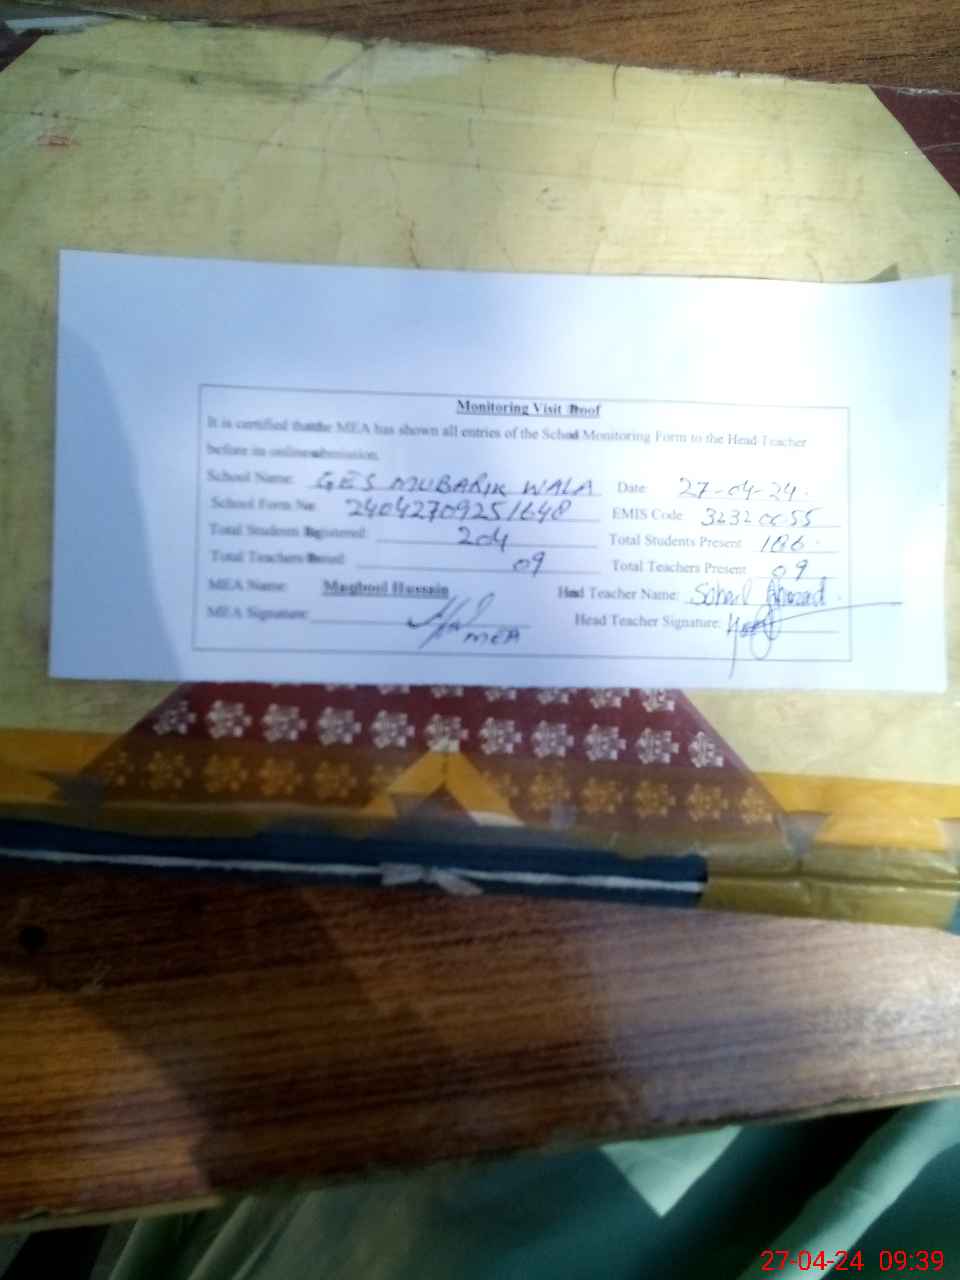 Monitoring Visit Proof
It is certified that the MEA has shown all entries of the School Monitoring Form to the Head Teacher
before its online submission.
School Name: GES MUBARIK WALA Date: 27-04-24.
School Form No: 24042709251648 EMIS Code: 32320055
Total Students Registered: 204 Total Students Present: 186
Total Teachers 09 Total Teachers Present 09
MEA Name: Maqbool Hussain Head Teacher Name: Sohail
MEA Signature: MEA Head Teacher Signature:
27-04-24 09:39